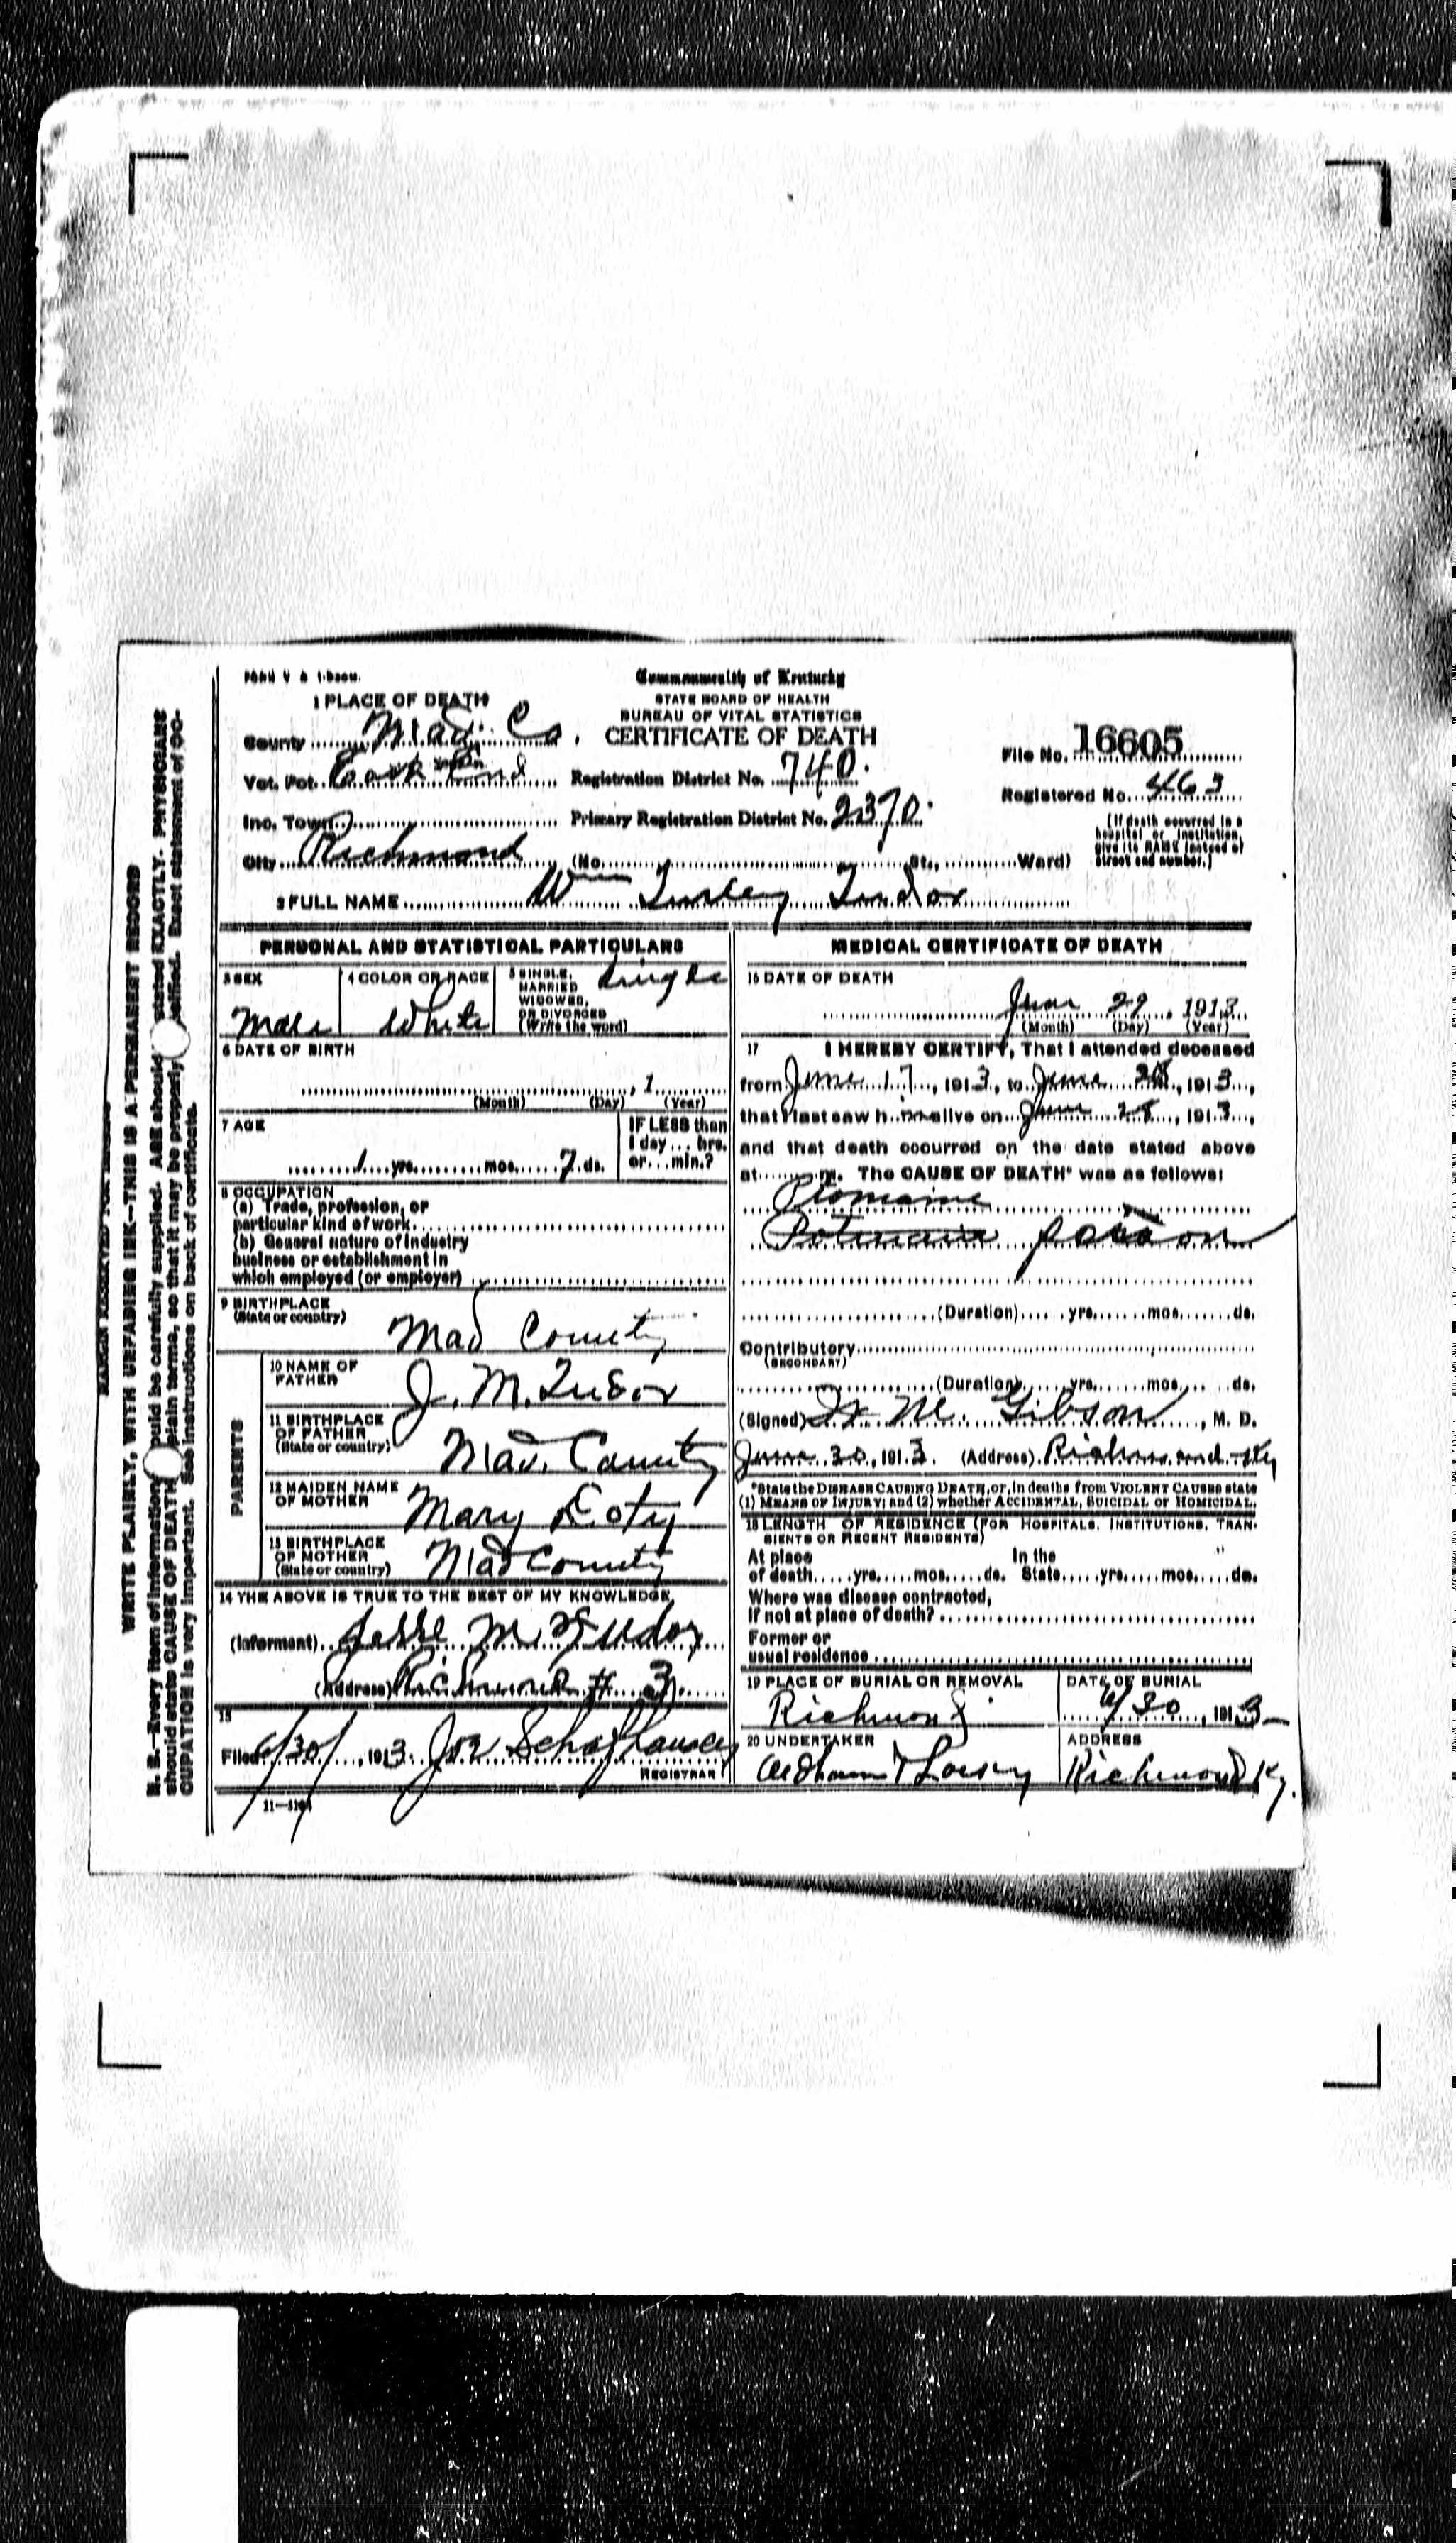 Commonwealth of Kentucky
STATE BOARD OF HEALTH
BUREAU OF VITAL STATISTICS
CERTIFICATE OF DEATH
1 PLACE OF DEATH
County Mad. Co.
Vot. Pct. East End
Inc. Town
City Richmond (No. St., Ward)
Registration District No. 740.
Primary Registration District No. 2370.
File No. 16605
Registered No. 463
[If death occurred in a
hospital or institution,
give its NAME instead of
street and number.]
2 FULL NAME Wm Turley Tudor
PERSONAL AND STATISTICAL PARTICULARS
3 SEX
Male
4 COLOR OR RACE
White
5 SINGLE,
MARRIED
WIDOWED,
OR DIVORCED
(Write the word)
Single
6 DATE OF BIRTH
, 1
(Month) (Day) (Year)
7 AGE
1 yrs. mos. 7 ds.
IF LESS than
1 day... hrs.
or... min.?
8 OCCUPATION
(a) Trade, profession, or
particular kind of work
(b) General nature of industry
business or establishment in
which employed (or employer)
9 BIRTHPLACE
(State or country)
Mad County
PARENTS
10 NAME OF
FATHER
J. M. Tudor
11 BIRTHPLACE
OF FATHER
(State or country)
Mad. County
12 MAIDEN NAME
OF MOTHER
Mary Doty
13 BIRTHPLACE
OF MOTHER
(State or country)
Mad County
14 THE ABOVE IS TRUE TO THE BEST OF MY KNOWLEDGE
(Informant) Jesse M Tudor
(Address) Richmond # 3
15
Filed 6/30/, 1913. Joe Schaffhauser
REGISTRAR
MEDICAL CERTIFICATE OF DEATH
16 DATE OF DEATH
June 29, 1913
(Month) (Day) (Year)
17 I HEREBY CERTIFY, That I attended deceased
from June 17, 1913, to June 28, 1913,
that I last saw him alive on June 28, 1913,
and that death occurred on the date stated above
at m. The CAUSE OF DEATH* was as follows:
Ptomaine
Potmain poison
(Duration) yrs. mos. ds.
Contributory
(SECONDARY)
(Duration) yrs. mos. ds.
(Signed) M. Gibson, M. D.
June 30, 1913. (Address) Richmond Ky
*State the DISEASE CAUSING DEATH, or, in deaths from VIOLENT CAUSES state
(1) MEANS OF INJURY; and (2) whether ACCIDENTAL, SUICIDAL or HOMICIDAL.
18 LENGTH OF RESIDENCE (FOR HOSPITALS, INSTITUTIONS, TRAN-
SIENTS OR RECENT RESIDENTS)
At place In the
of death yrs. mos. ds. State yrs. mos. ds.
Where was disease contracted,
If not at place of death?
Former or
usual residence
19 PLACE OF BURIAL OR REMOVAL
Richmond
DATE OF BURIAL
6/30, 1913
20 UNDERTAKER
ADDRESS
Richmond Ky.
WRITE PLAINLY, WITH UNFADING INK—THIS IS A PERMANENT RECORD
N. B.—Every item of information should be carefully supplied. AGE should stated EXACTLY. PHYSICIANS
should state CAUSE OF DEATH plain terms, so that it may be properly. Exact statement of OC-
CUPATION is very important. See instructions on back of certificate.